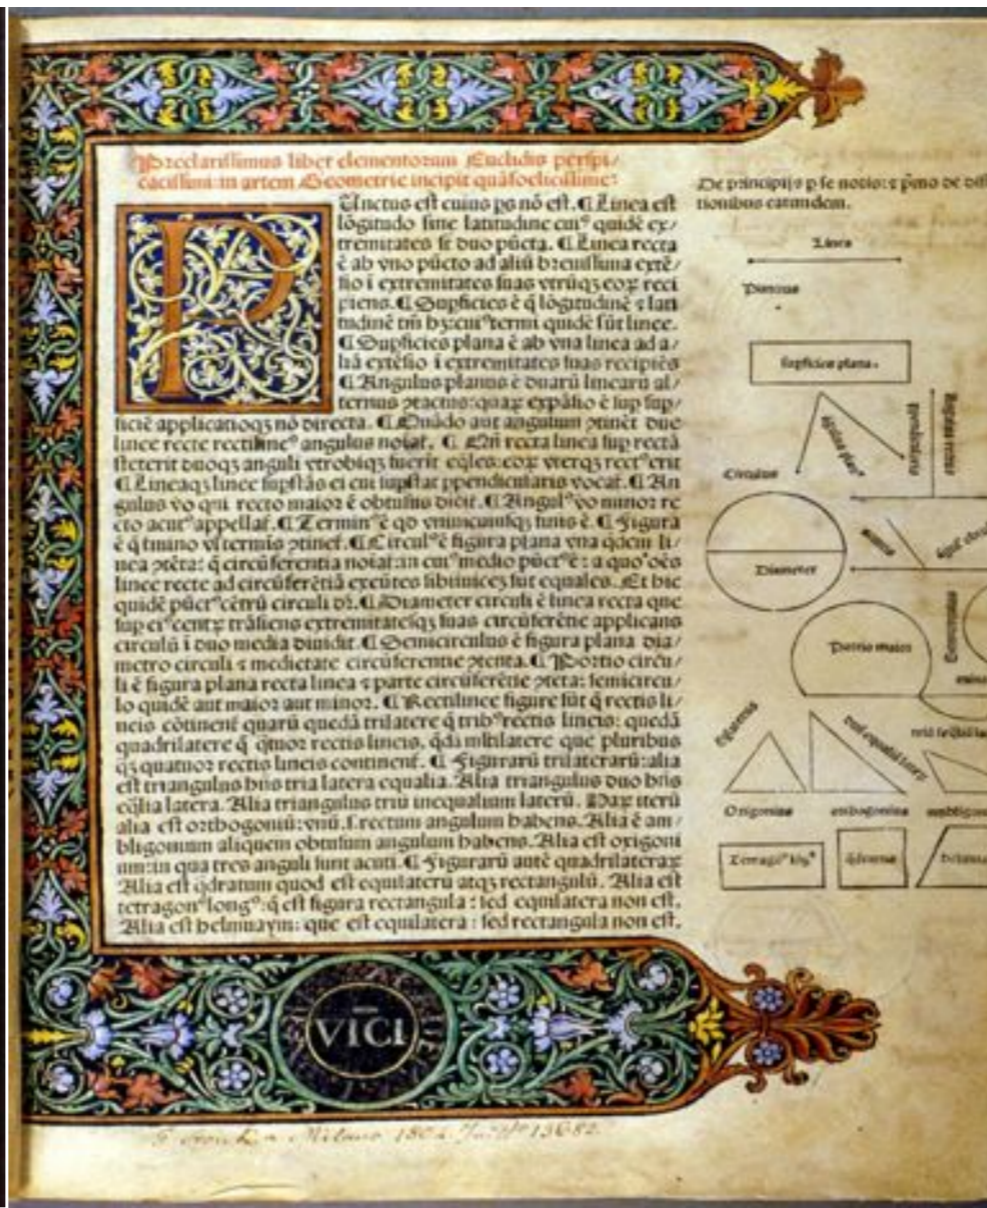 Preclarissimus liber elementorum Euclidis perspi/
cacissimi: in artem Geometrie incipit quãfoelicissime:
PUnctus est cuius ps nõ est. ¶ Linea est
lõgitudo sine latitudine cuiꝰ quidẽ ex/
tremitates st duo pũcta. ¶ Linea recta
ẽ ab vno pũcto ad aliũ breuissima extẽ/
sio i extremitates suas vtrũqꝫ eoꝝ reci
piens. ¶ Supficies ẽ q̃ lõgitudinẽ ⁊ lati
tudinẽ tm̃ hꝫ: cuiꝰ termi quidẽ sũt linee.
¶ Supficies plana ẽ ab vna linea ad a/
liã extẽsio i extremitates suas recipiẽs
¶ Angulus planus ẽ duarũ linearũ al/
ternus ꝯtactus: quaꝝ expãsio ẽ sup sup/
ficiẽ applicatioqꝫ nõ directa. ¶ Quãdo aut angulum ꝯtinẽt due
linee recte rectilineꝰ angulus noiat̃. ¶ Qñ recta linea sup rectã
steterit duoqꝫ anguli vtrobiqꝫ fuerit eq̃les: eoꝝ vterqꝫ rectꝰ erit
¶ Lineaqꝫ linee supstãs ei cui supstat ppendicularis vocat̃. ¶ An
gulus vo qui recto maior ẽ obtusus dicit̃. ¶ Angulꝰ vo minor re
cto acutꝰ appellat̃. ¶ Terminꝰ ẽ qd vniuscuiusqꝫ finis ẽ. ¶ Figura
ẽ q̃ tmino vl termis ꝯtinet̃. ¶ Circulꝰ ẽ figura plana vna qdem li/
nea ꝯtẽta: q̃ circũferentia noiat̃: in cuiꝰ medio pũctꝰ ẽ: a quo oẽs
linee recte ad circũferẽtiã exeũtes sibiinuiceꝫ sũt equales. Et hic
quidẽ pũctꝰ cẽtrũ circuli dr̃. ¶ Diameter circuli ẽ linea recta que
sup eiꝰ centꝝ trãsiens extremitatesqꝫ suas circũferẽtie applicans
circulũ i duo media diuidit. ¶ Semicirculus ẽ figura plana dia/
metro circuli ⁊ medietate circũferentie ꝯtenta. ¶ Portio circu/
li ẽ figura plana recta linea ⁊ parte circũferẽtie ꝯtẽta: semicircu/
lo quidẽ aut maior aut minor. ¶ Rectilinee figure sũt q̃ rectis li/
neis cõtinent̃ quarũ quedã trilatere q̃ tribꝰ rectis lineis: quedã
quadrilatere q̃ q̃tuor rectis lineis. q̃dã mltilatere que pluribus
qꝫ quatuor rectis lineis continent̃. ¶ Figurarũ trilaterarũ: alia
est triangulus hñs tria latera equalia. Alia triangulus duo hñs
eq̃lia latera. Alia triangulus triũ inequalium laterũ. Haꝝ iterũ
alia est orthogoniũ: vnũ. s. rectum angulum habens. Alia ẽ am/
bligonium aliquem obtusum angulum habens. Alia est oxigoni
um: in qua tres anguli sunt acuti. ¶ Figurarũ autẽ quadrilateraꝝ
Alia est q̃dratum quod est equilaterũ atqꝫ rectangulũ. Alia est
tetragonꝰ longꝰ: q̃ est figura rectangula: sed equilatera non est.
Alia est helmuaym: que est equilatera: sed rectangula non est.
De principijs p se notis: ⁊ pmo de diffi
tionibus earundem.
Linea
Punctus
supficies plana.
Circulus
Diameter
Portio maior
Oxigonius
VICI
Milano